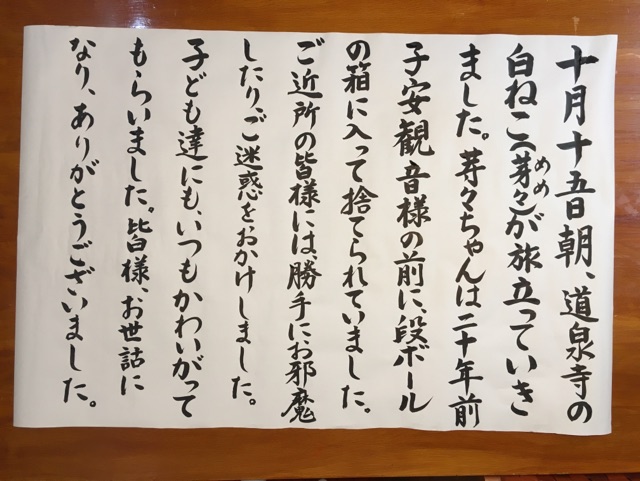 十月十五日朝、道泉寺の
白ねこ(芽々)が旅立っていき
めめ
ました。芽々ちゃんは二十年前
子安観音様の前に、段ボール
の箱に入って捨てられていました。
ご近所の皆様には、勝手にお邪魔
したり、ご迷惑をおかけしました。
子ども達にも、いつもかわいがって
もらいました。皆様、お世話に
なり、ありがとうございました。